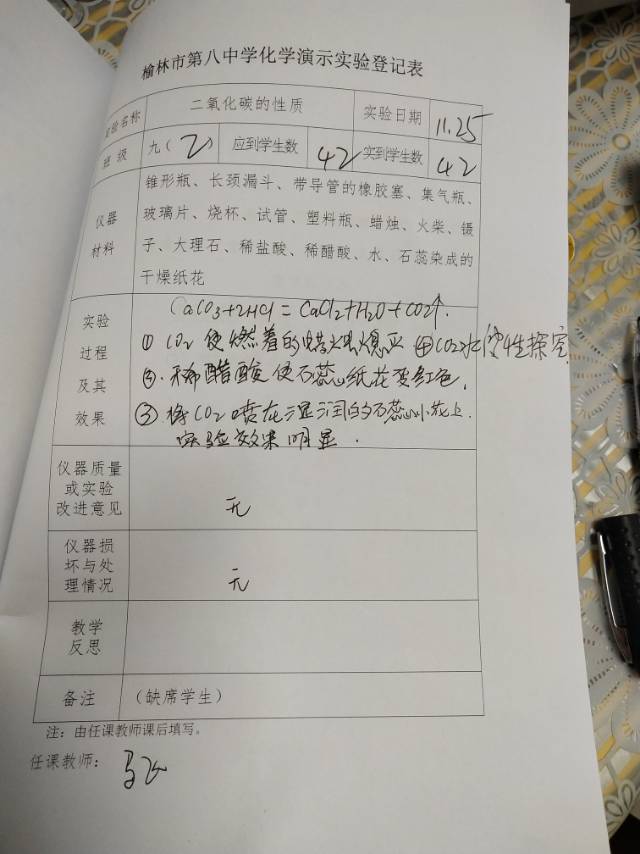 榆林市第八中学化学演示实验登记表
实验名称 二氧化碳的性质 实验日期 11.25
班级 九(2) 应到学生数 42 实到学生数 42
仪器材料
锥形瓶、长颈漏斗、带导管的橡胶塞、集气瓶、
玻璃片、烧杯、试管、塑料瓶、蜡烛、火柴、镊
子、大理石、稀盐酸、稀醋酸、水、石蕊染成的
干燥纸花
实验过程及其效果
CaCO3+2HCl=CaCl2+H2O+CO2↑.
① CO2使燃着的蜡烛熄灭 ④CO2水溶性探究
②.稀醋酸使石蕊纸花变红色.
③.将CO2喷在湿润的石蕊小花上.
实验效果明显.
仪器质量或实验改进意见 无
仪器损坏与处理情况 无
教学反思
备注 (缺席学生)
注:由任课教师课后填写。
任课教师: